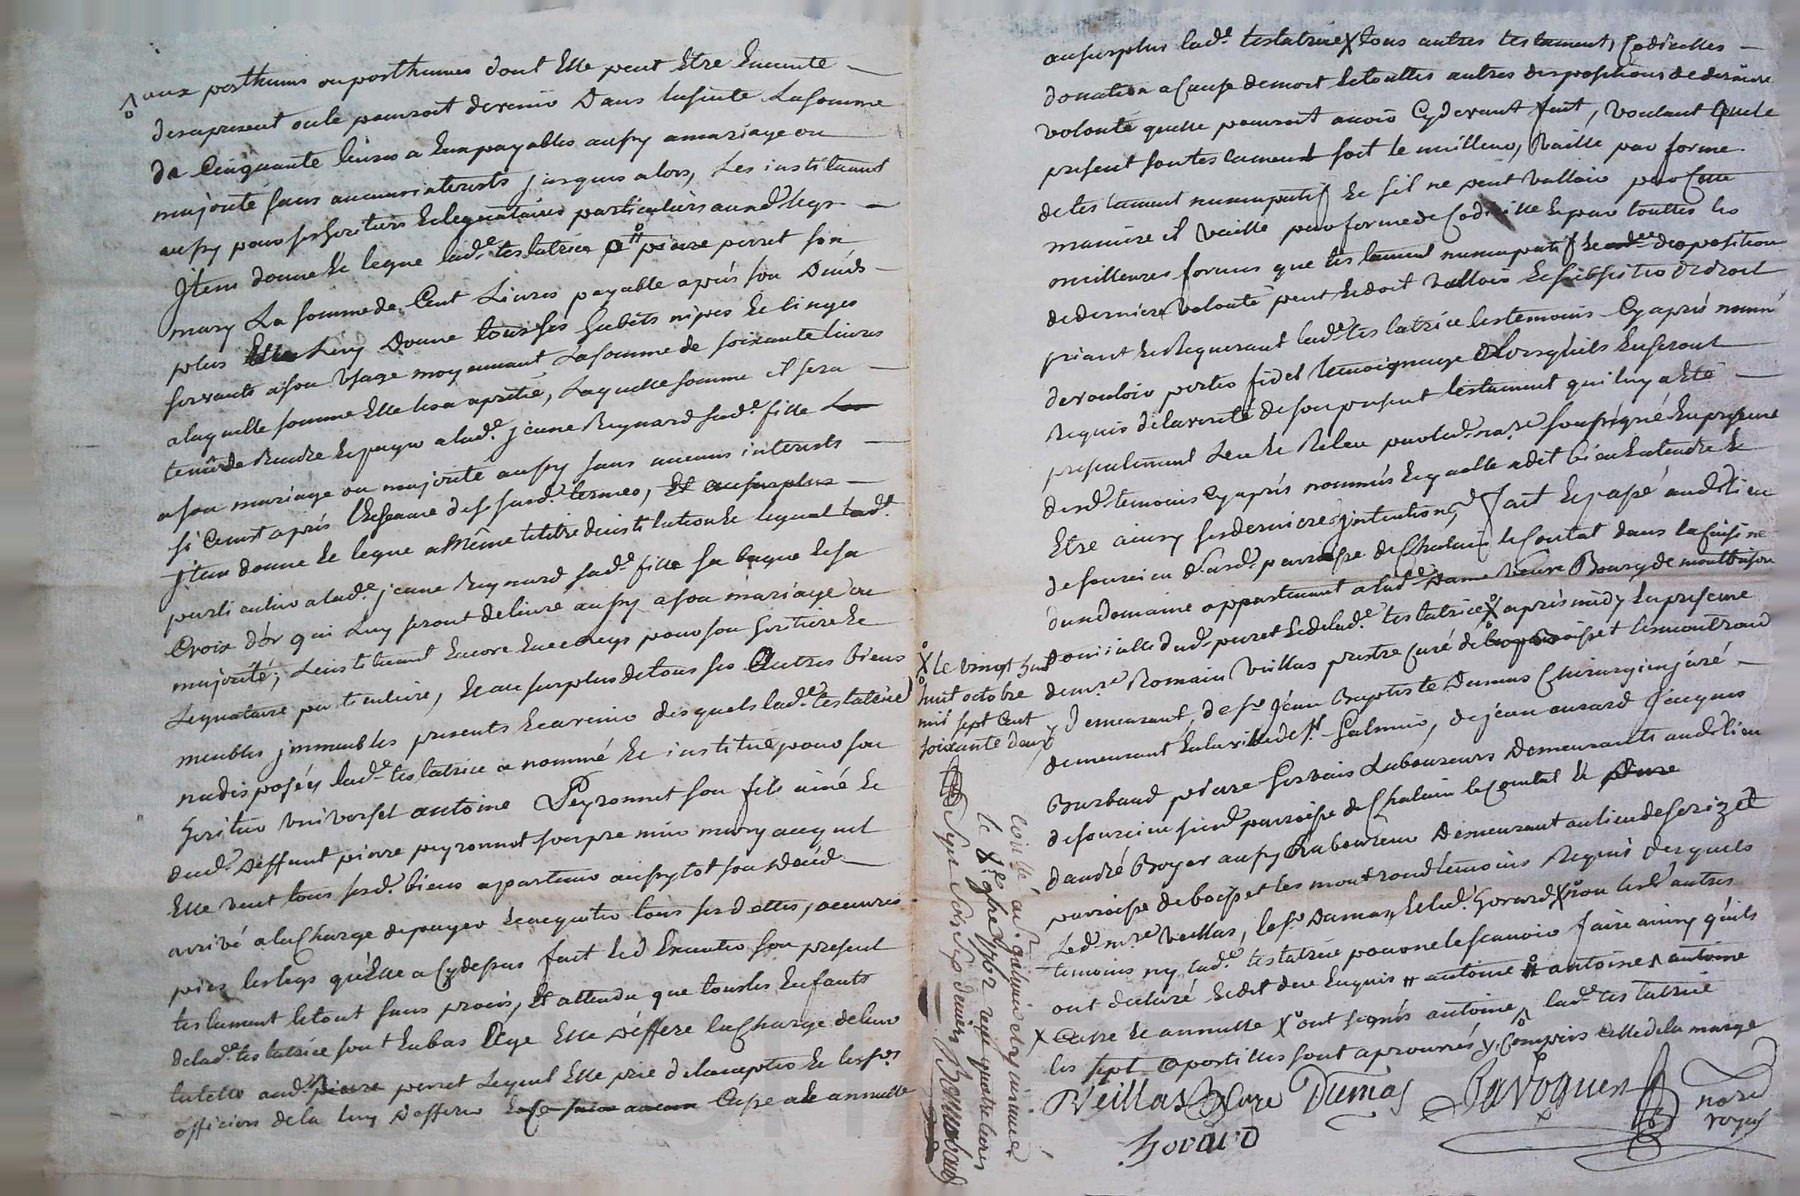 aux posthume ou posthumes dont Elle peut Etre Enceinte
des apresent ou le pourroit devenir Dans la suite La somme
de Cinquante livres a Eux payables aussy a mariage ou
majorité sans aucuns interests jusques alors, Les instituant
aussy pour ses heritiers Et legataires particuliers auxd. legs
Item donne Et legue lad.e testatrice a pierre perret son
mary La somme de Cent Livres payable après son Décés
plus luy Donne tous ses habits nipes Et linges
servants a son Usage moyennant La somme de soixante livres
a laquelle somme Elle les a apretié, Laquelle somme il sera
tenu de Rendre Et payer a lad.e jeane Reynard sad.e fille
a son mariage ou majorité aussy sans aucuns interests
si Ce n'est après l'Echeance desd. susd. termes, Et au surplus
Item donne Et legue a Même titre d'institution Et legual lad.e
particulier a lad.e jeane Reynard sad.e fille sa bague Et sa
Croix d'or qui Luy seront delivré aussy a son mariage ou
majorité, L'instituant Encore En ce legs pour son heritiere Et
Legataire particuliere, Et au surplus de tous ses Autres biens
meubles immeubles presents Et avenir desquels lad.e testatrice
n'a disposéz lad.e testatrice a nommé Et institué pour son
heritier universel antoine Peyronnet son fils ainé Et
dud. Deffunt pierre peyronnet son premier mary auquel
Elle veut tous sesd. biens apartenir aussytot son Décéd
arrivé a la Charge de payer Et acquitter tous ses dettes, oeuvres
pies les legs qu'Elle a Cydessus fait Et d'Executer son present
testament le tout sans procés, Et attendu que tous les Enfants
de lad.e testatrice sont En bas Age Elle Déffere la Charge de leur
tutelle aud. pierre perret Lequel Elle prie de l'accepter Et les srs
officiers de la luy Defferer Casse et annulle
au surplus lad.e testatrice X tous autres testaments, Codicilles
donation a Cause de mort Et touttes autres dispositions de derniere
volonté qu'elle pourroit avoir Cydevant fait, Voulant que le
present son testament soit le meilleur, Vaille par forme
de testament nuncupatif Et s'il ne peut Valloir par Cette
maniere il vaille par forme de Codicille Et par touttes les
meilleures formes que testament nuncupatif Et disposition
de derniere Volonté peut Et doit Valloir Et subsister De droit
priant Et Requerant lad.e testatrice les temoins Cyaprés nommés
de vouloir porter fidel temoignage Lorsqu'ils En seront
Requis de la verité de son present testament qui luy a Eté
presentement Leu Et Releu par led. no.re soussigné En presence
desd. temoins Cyaprés nommés Et qu'elle a dit bien Entendre Et
Etre ainsy ses dernieres intentions, fait Et passé aud. lieu
de fourcieu d. susd. parroisse de Chalain le Contat dans la Cuisine
du domaine appartenant a lad.e Dame Bourg de montbrison
domicille dud. perret Et de lad.e testatrice X aprés midy En presence
de m.re Romain Veillas prestre Curé de boisset lesmontrond
y demeurant, de s.r Jéan Baptiste Dumas Chirurgien juré
demeurant En la ville de s.t Galmier, de jean Jacques
Burbaud pierre Gervais Laboureurs Demeurants aud. lieu
de fourcieu susd. parroisse de Chalain le Contat Et
d'andré Boyer aussy Laboureur Demeurant au lieu de
parroisse de boisset les montrond temoins Requis desquels
Led. m.re Veillas, le s.r Dumas, Et led. Govard X non Les autres
temoins ny lad.e testatrice pour ne le scavoir faire ainsy qu'ils
ont déclaré Et dit de ce Enquis antoine antoine antoine
X Casse Et annulle X ont signés antoine lad.e testatrice
les sept apostilles sont aprouvées y Compris Celle de la marge
X le vingt
huit octobre
mil sept Cent
soixante deux
Veillas Cure Dumas Javogues
nore
royal
Govard
Controllé a s.t galmier
le 8e 9bre 1762 reçu quatre livres